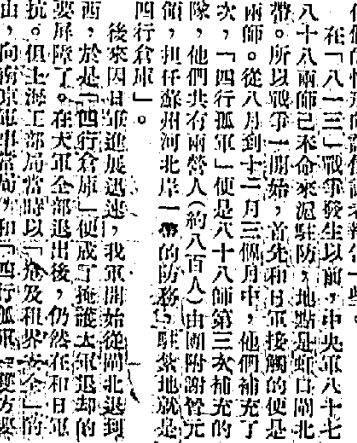 在「八一三」戰爭發生以前，中央軍八十七
八十八兩師已未命來滬駐防，地點是虹口閘北
帶。所以戰爭一開始，首先和日軍接觸的便是
兩師。從八月到十一月三個月中，他們補充了
次，「四行孤軍」便是八十八師第三次補充的
隊，他們共有兩營人（約八百人）由團附謝晉元
領，担任蘇州河北岸一帶的防務，駐紮地就是
四行倉庫」。
後來因日軍進展迅速，我軍開始從閘北退到
西，於是「四行倉庫」便成了掩護大軍退却的
要屏障了。在大軍全部退出後，仍然在和日軍
抗。但上海工部局當時以「危及租界安全」的
由，向南京軍事當局，和「四行孤軍」雙方